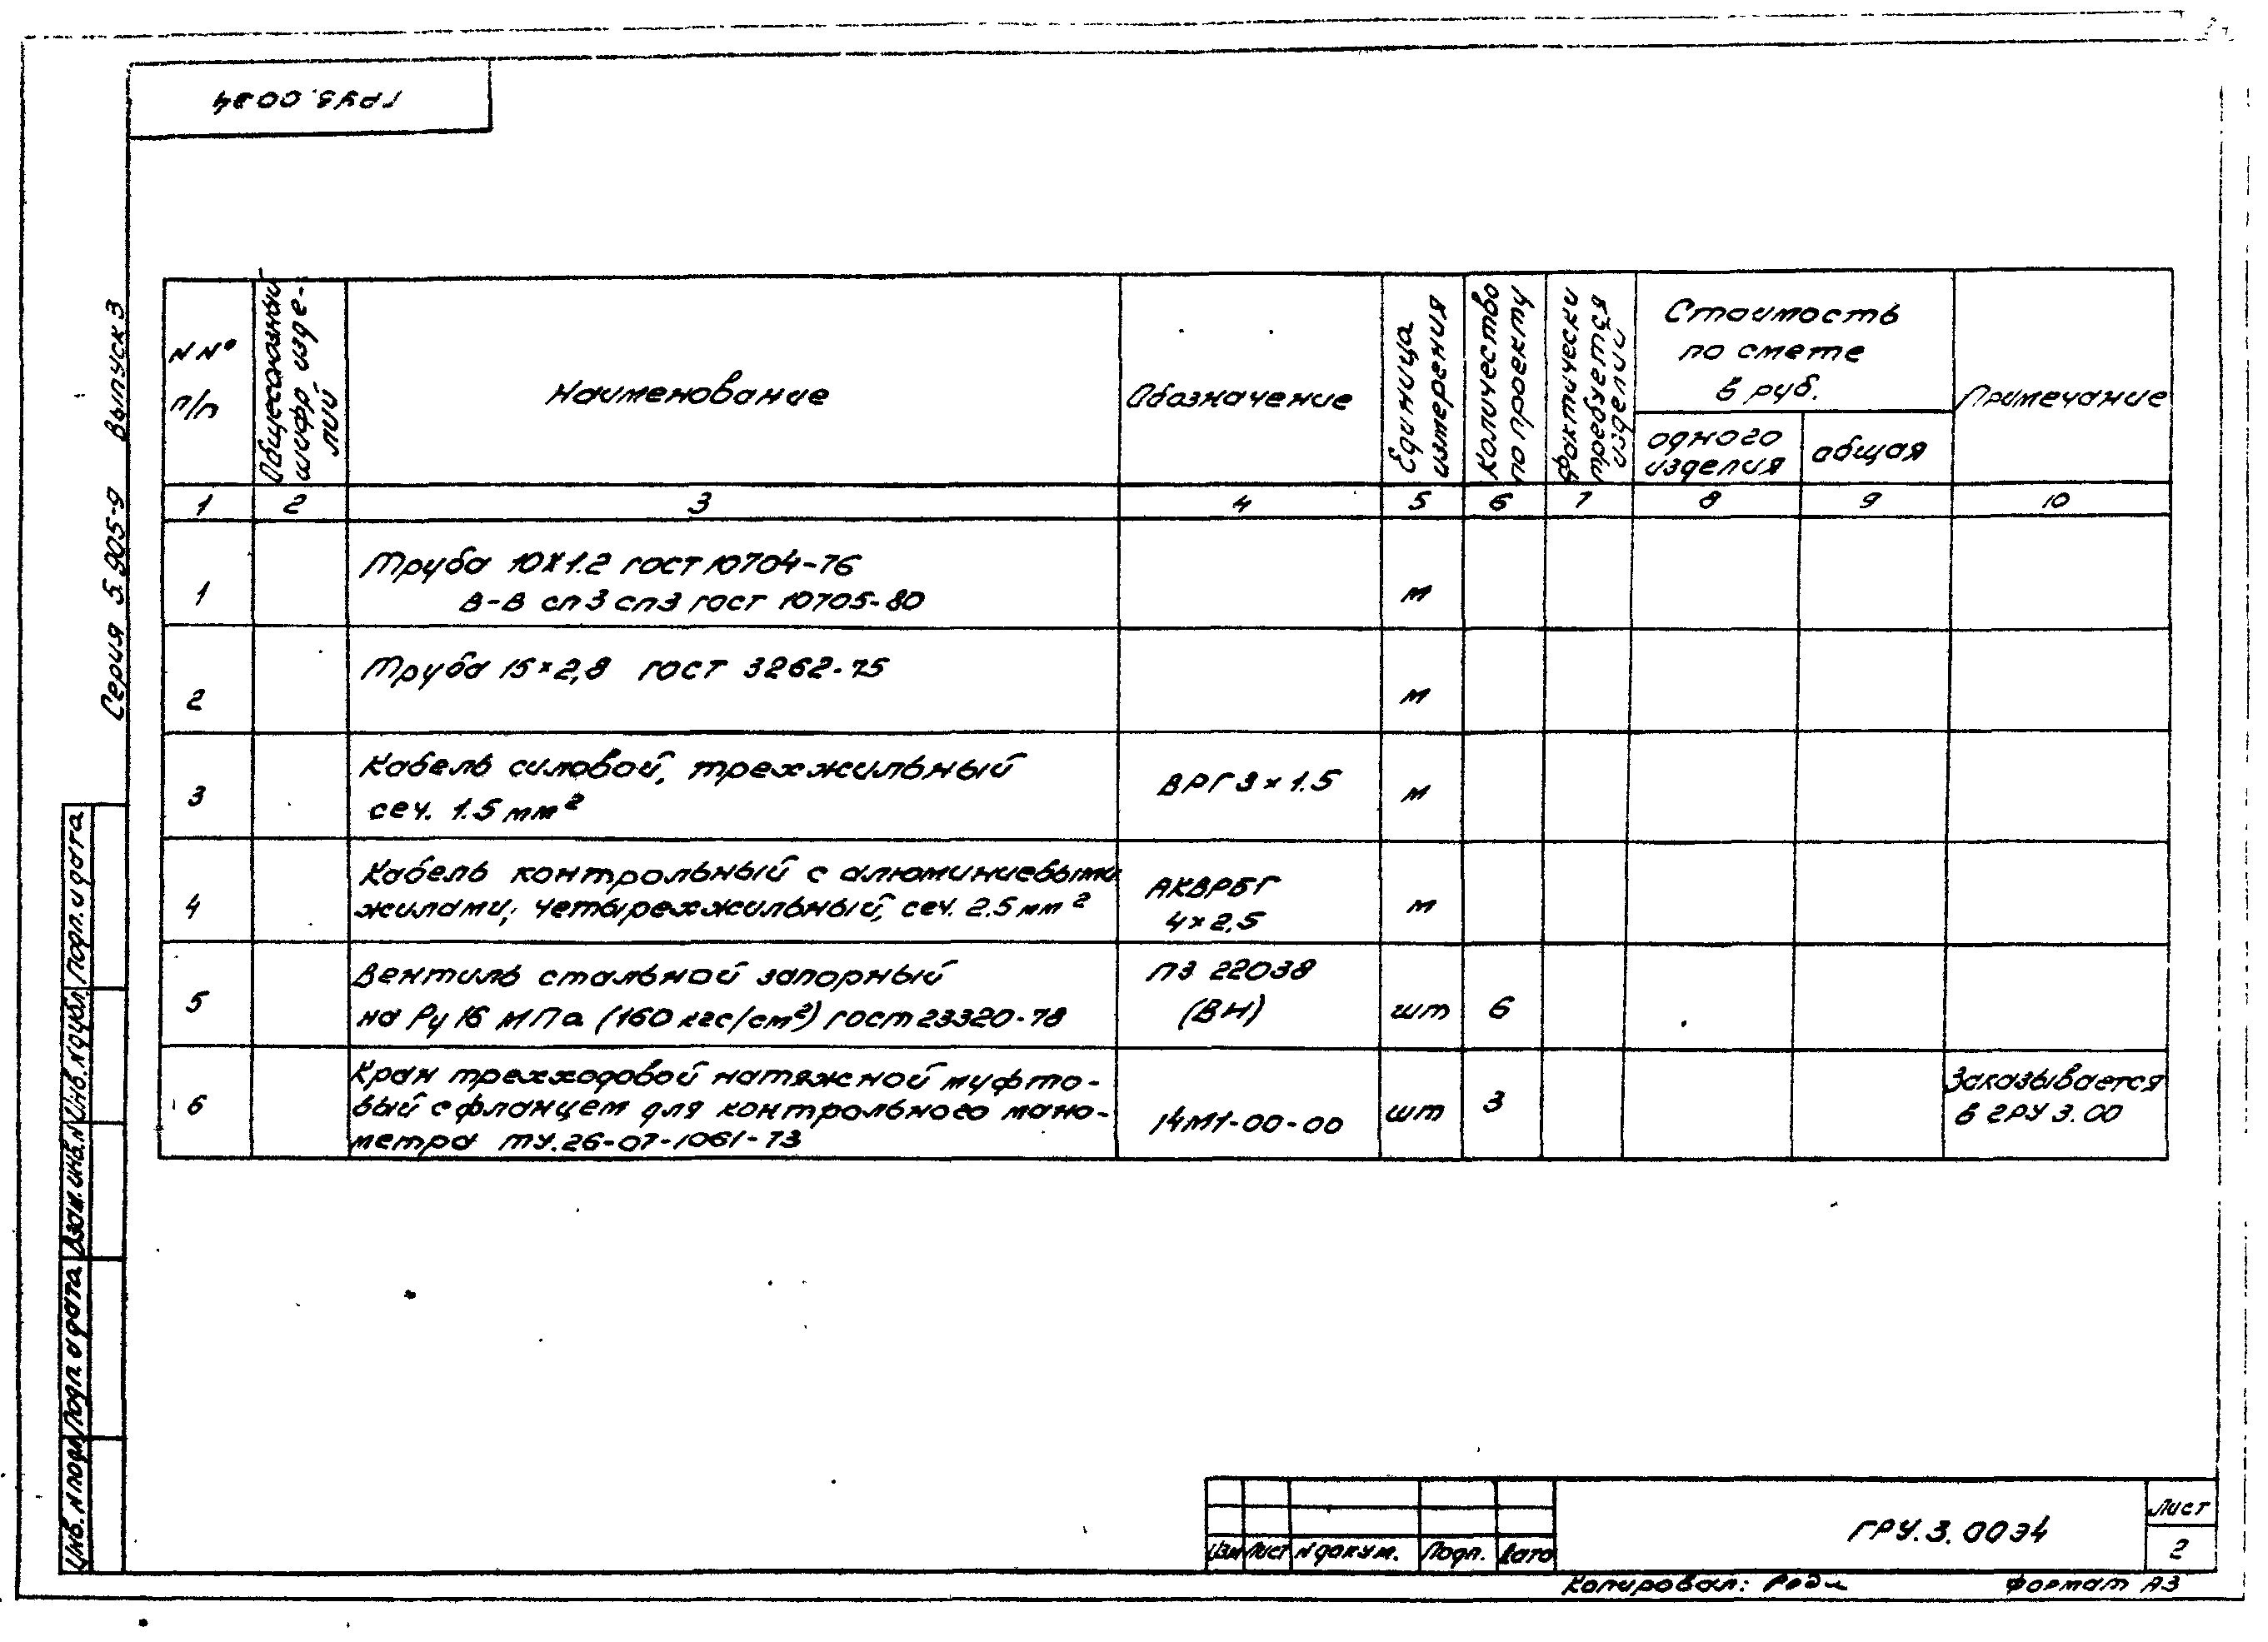 ГРУ3.00Э4
Серия 5.905-9 Выпуск 3
N Nº
п/п
Общесоюзный
шифр изде-
лий
Наименование
Обозначение
Единица
измерения
Количество
по проекту
Фактически
требуется
изделий
Стоимость
по смете
в руб.
одного
изделия
общая
Примечание
1 2 3 4 5 6 7 8 9 10
1 Труба 10х1.2 ГОСТ 10704-76
В-В сп3 сп3 ГОСТ 10705-80 м
2 Труба 15×2,8 ГОСТ 3262-75 м
3 Кабель силовой, трехжильный
сеч. 1.5 мм² ВРГ 3×1.5 м
4 Кабель контрольный с алюминиевыми
жилами, четырехжильный, сеч. 2.5 мм² АКВРБГ
4×2,5 м
5 Вентиль стальной запорный
на Ру 16 МПа (160 кгс/см²) ГОСТ 23320-78 ПЗ 22038
(ВН) шт 6
6 Кран трехходовой натяжной муфто-
вый с фланцем для контрольного мано-
метра ТУ.26-07-1061-73 14М1-00-00 шт 3 Заказывается
в ГРУ 3.00
Инв. N подл. Подп. и дата Взам. инв. N Инв. N дубл. Подп. и дата
Изм Лист N докум. Подп. Дата
ГРУ.3.00Э4
Лист
2
Копировал:
Формат А3